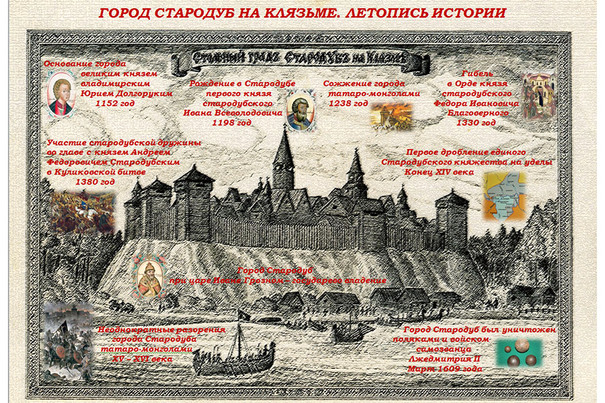 ГОРОД СТАРОДУБ НА КЛЯЗЬМЕ. ЛЕТОПИСЬ ИСТОРИИ
СТОЛЬНЫЙ ГРАДЪ СТАРОДУБЪ НА КЛЯЗМѢ
Основание города
великим князем
владимирским
Юрием Долгоруким
1152 год
Рождение в Стародубе
первого князя
стародубского
Ивана Всеволодовича
1198 год
Сожжение города
татаро-монголами
1238 год
Гибель
в Орде князя
стародубского
Федора Ивановича
Благоверного
1330 год
Участие стародубской дружины
во главе с князем Андреем
Федоровичем Стародубским
в Куликовской битве
1380 год
Первое дробление единого
Стародубского княжества на уделы
Конец XIV века
Город Стародуб
при царе Иване Грозном – государево владение
Неоднократные разорения
города Стародуба
татаро-монголами
XV – XVI века
Город Стародуб был уничтожен
поляками и войском
самозванца
Лжедмитрия II
Март 1609 года